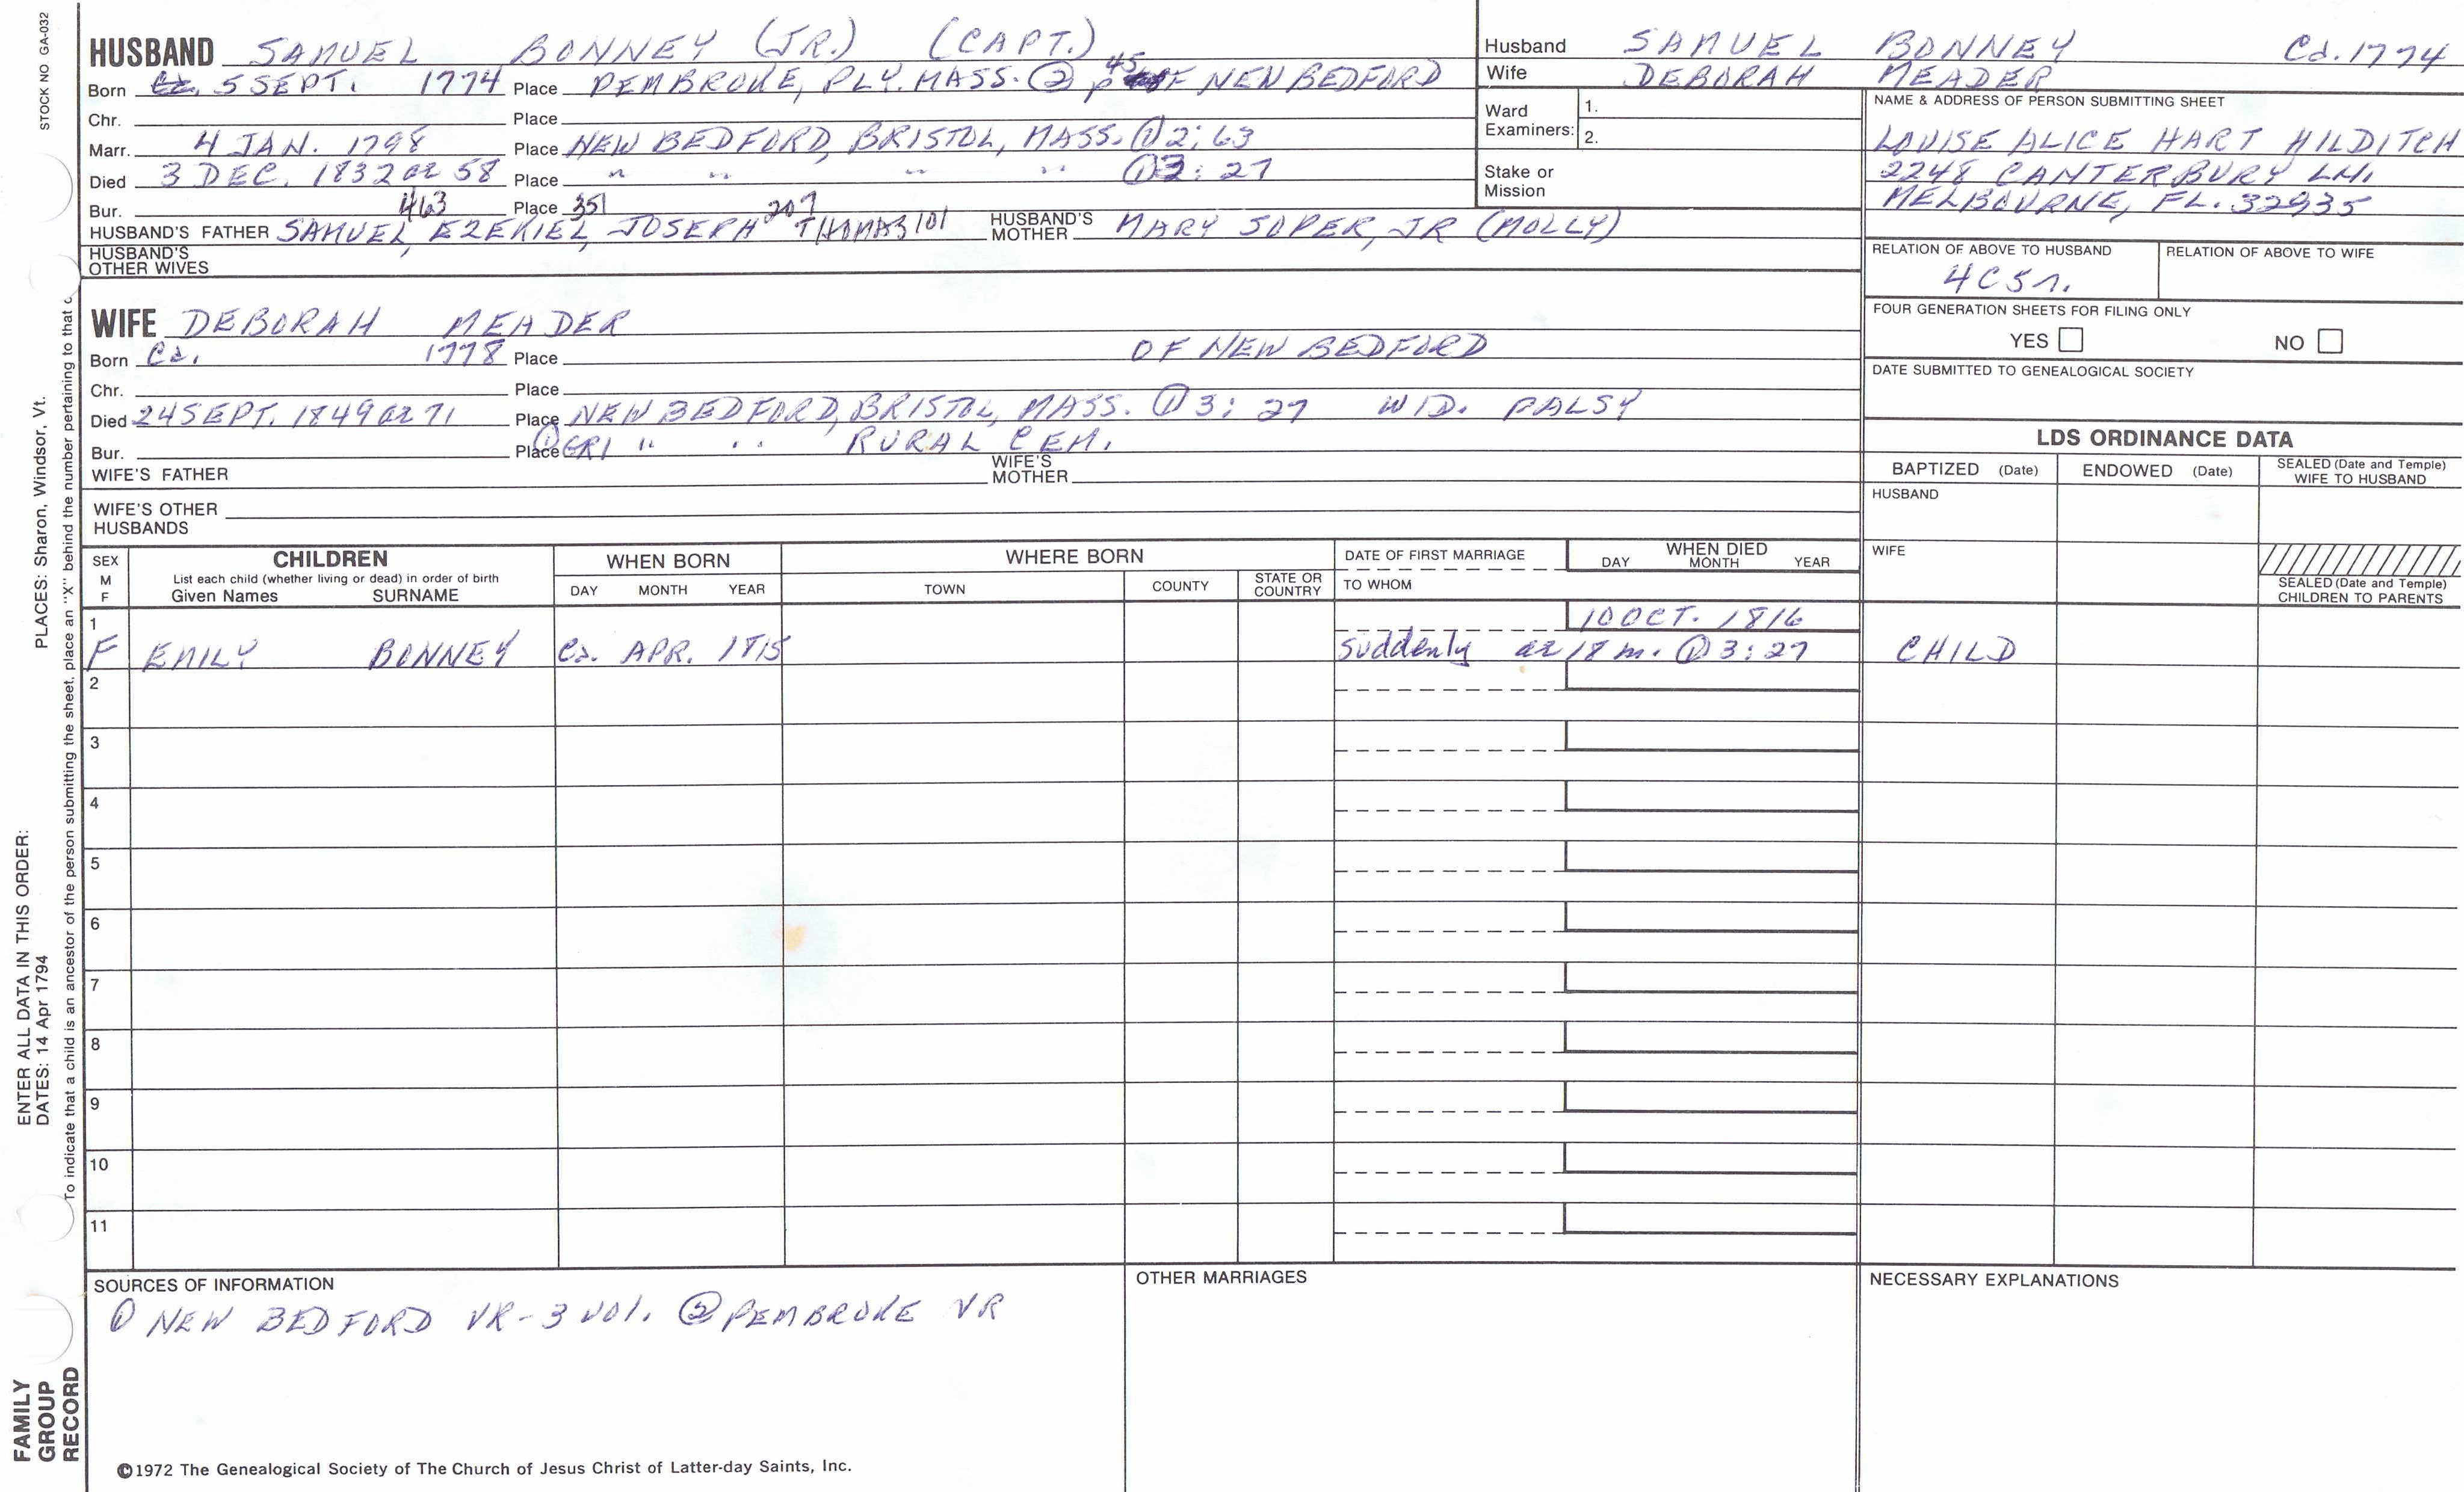 STOCK NO GA-032
HUSBAND SAMUEL BONNEY (JR.) (CAPT.)
Born Ca. 5 SEPT. 1774 Place PEMBROKE, PLY. MASS. ② p 45 OF NEW BEDFORD
Chr. Place
Marr. 4 JAN. 1798 Place NEW BEDFORD, BRISTOL, MASS. ① 2:63
Died 3 DEC. 1832 ae 58 Place " " " " ① 3:27
Bur. Place
463 351 207
HUSBAND'S FATHER SAMUEL, EZEKIEL, JOSEPH THOMAS 101 HUSBAND'S MOTHER MARY SOPER, JR (MOLLY)
HUSBAND'S OTHER WIVES
WIFE DEBORAH MEADER
Born Ca. 1778 Place OF NEW BEDFORD
Chr. Place
Died 24 SEPT. 1849 ae 71 Place NEW BEDFORD, BRISTOL, MASS. ① 3:27 WID. PALSY
Bur. Place ① GR1 " " RURAL CEM.
WIFE'S FATHER WIFE'S MOTHER
WIFE'S OTHER HUSBANDS
Husband SAMUEL BONNEY Ca. 1774
Wife DEBORAH MEADER
Ward Examiners: 1.
2.
Stake or Mission
NAME & ADDRESS OF PERSON SUBMITTING SHEET
LOUISE ALICE HART HILDITCH
2248 CANTERBURY LN.
MELBOURNE, FL. 32935
RELATION OF ABOVE TO HUSBAND RELATION OF ABOVE TO WIFE
4C5r.
FOUR GENERATION SHEETS FOR FILING ONLY
YES NO
DATE SUBMITTED TO GENEALOGICAL SOCIETY
LDS ORDINANCE DATA
BAPTIZED (Date) ENDOWED (Date) SEALED (Date and Temple) WIFE TO HUSBAND
HUSBAND
WIFE
SEALED (Date and Temple) CHILDREN TO PARENTS
SEX M F CHILDREN WHEN BORN WHERE BORN DATE OF FIRST MARRIAGE WHEN DIED
List each child (whether living or dead) in order of birth
Given Names SURNAME DAY MONTH YEAR TOWN COUNTY STATE OR COUNTRY TO WHOM DAY MONTH YEAR
1 10 OCT. 1816
F EMILY BONNEY Ca. APR. 1815 suddenly ae 18 m. ① 3:27 CHILD
2
3
4
5
6
7
8
9
10
11
SOURCES OF INFORMATION
① NEW BEDFORD VR - 3 vol. ② PEMBROKE VR
OTHER MARRIAGES
NECESSARY EXPLANATIONS
©1972 The Genealogical Society of The Church of Jesus Christ of Latter-day Saints, Inc.
PLACES: Sharon, Windsor, Vt.
To indicate that a child is an ancestor of the person submitting the sheet, place an "X" behind the number pertaining to that c
ENTER ALL DATA IN THIS ORDER:
DATES: 14 Apr 1794
FAMILY
GROUP
RECORD